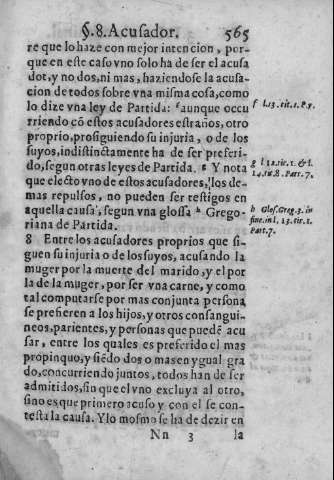 §.8. Acusador. 565
re que lo haze con mejor intencion, por-
que en este caso vno solo ha de ser el acusa
dor, y no dos, ni mas, haziendose la acusa-
cion de todos sobre vna misma cosa, como
lo dize vna ley de Partida: f aunque occu
rriendo cō estos acusadores estraños, otro
proprio, prosiguiendo su injuria, o de los
suyos, indistinctamente ha de ser preferi-
do, segun otras leyes de Partida. g Y nota
que electo vno de estos acusadores, los de-
mas repulsos, no pueden ser testigos en
aquella causa, segun vna glossa h Grego-
riana de Partida.
8 Entre los acusadores proprios que si-
guen su injuria o de los suyos, acusando la
muger por la muerte del marido, y el por
la de la muger, por ser vna carne, y como
tal computarse por mas conjunta persona
se prefieren a los hijos, y otros consangui-
neos, parientes, y personas que puedē acu
sar, entre los quales es preferido el mas
propinquo, y siēdo dos o mas en ygual gra
do, concurriendo juntos, todos han de ser
admitidos, sin que el vno excluya al otro,
sino es que primero acuso y con el se con-
testa la causa. Y lo mosmo se ha de dezir en
Nn 3 la
f l.13. tit. 1. P.7.
g l. 12. tit. 1. & l.
14. tit. 8. Part. 7.
h Glos. Greg. 3. in
fine. in l. 13. tit. 1.
Part. 7.